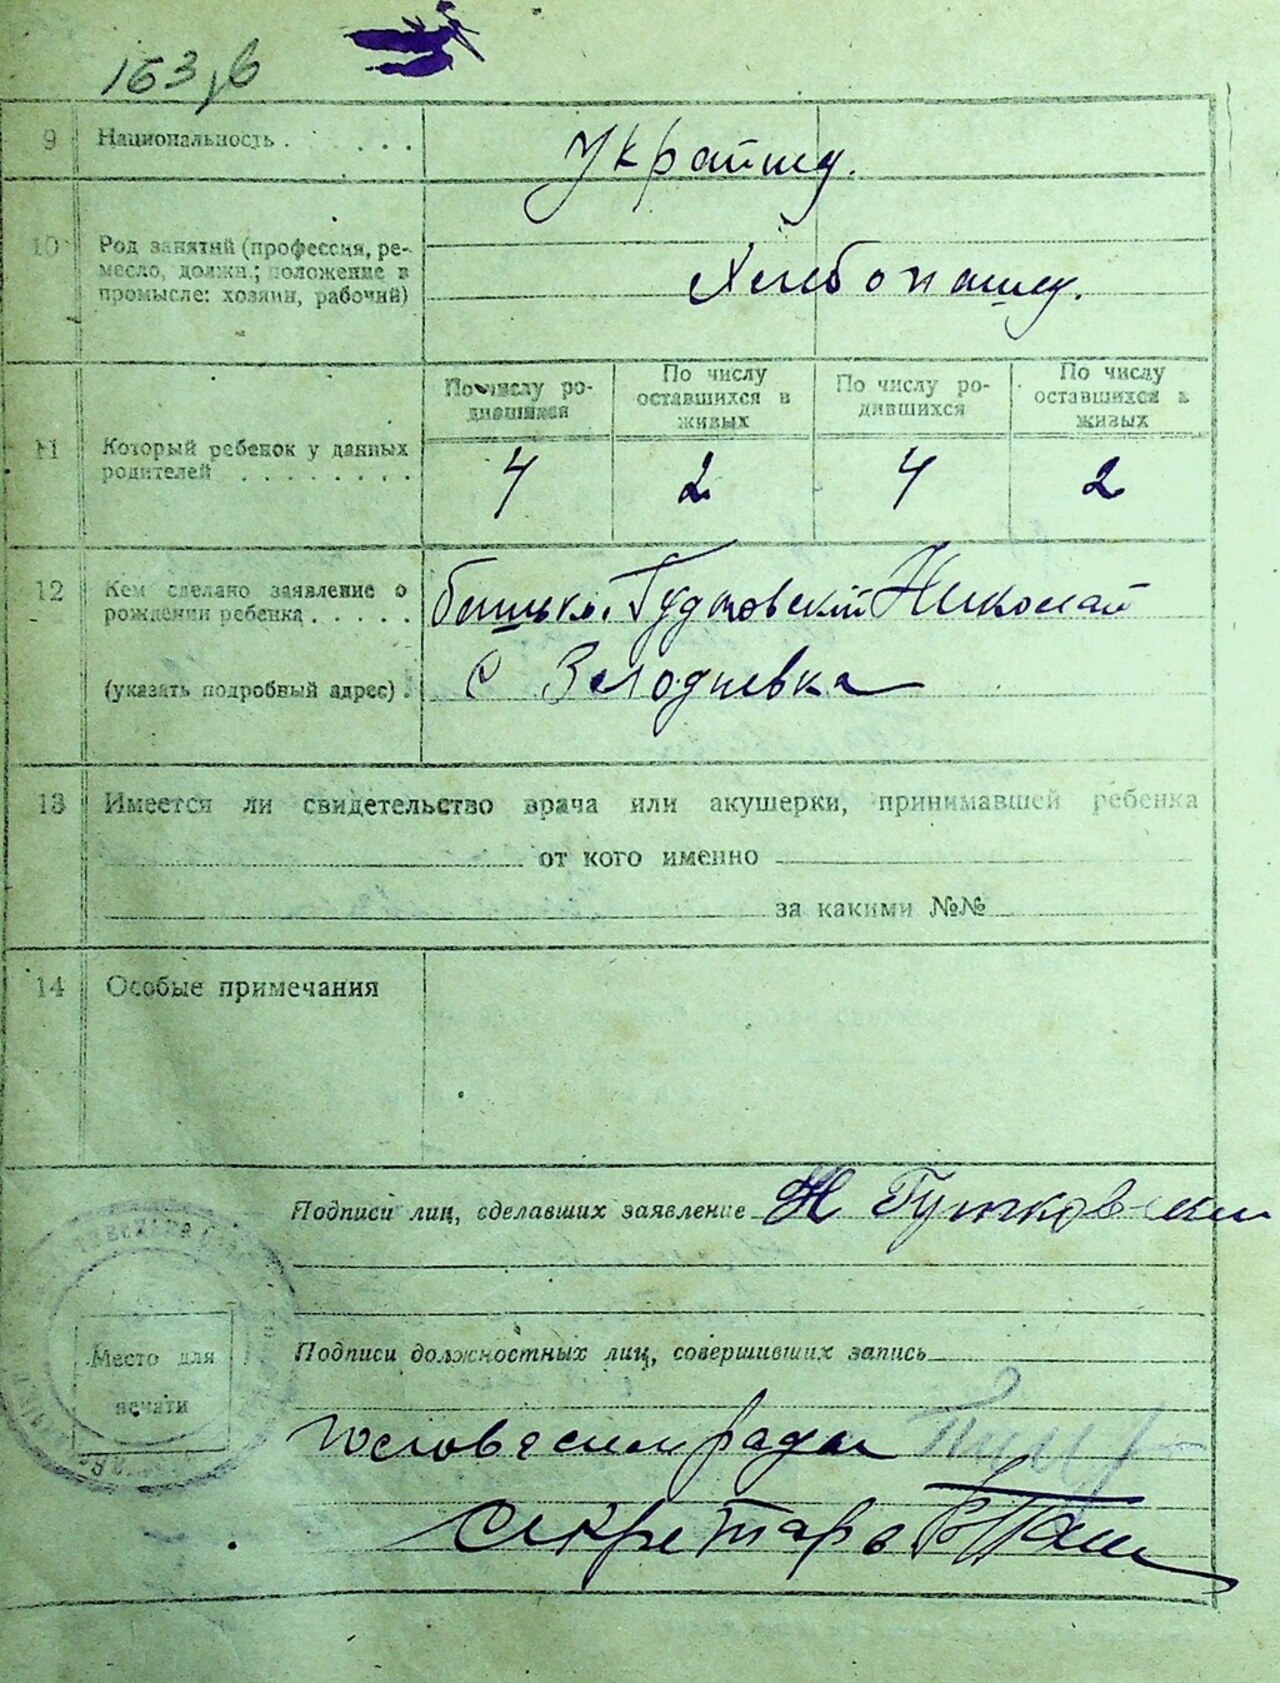 153,б
9 Национальность . . . . Українці.
10 Род занятий (профессия, ре-
месло, должн.; положение в
промысле: хозяин, рабочий)
Хлібопашці.
По числу ро-
дившихся
По числу
оставшихся в
живых
По числу ро-
дившихся
По числу
оставшихся в
живых
11 Который ребенок у данных
родителей . . . . . . . .
4 2 4 2
12 Кем сделано заявление о
рождении ребенка . . . . .
батько. Гудковский Николай
(указать подробный адрес) .
с
13 Имеется ли свидетельство врача или акушерки, принимавшей ребенка
от кого именно
за какими №№
14 Особые примечания
Подписи лиц, сделавших заявление Н Гутковский
Подписи должностных лиц, совершивших запись
Место для
печати
Голова сільради
Секретарь